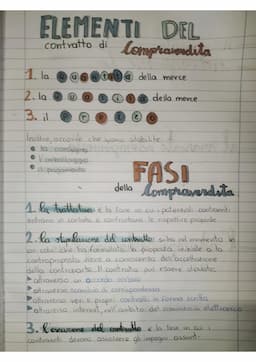 ELEMENTI DEL
contratto di Compravendita
1. la QUANTITÀ della merce
2. la QUALITÀ della merce
3. il PREZZO
Inoltre, occorre che siano stabilite
la consegna
l'imballaggio
il pagamento
FASI
della Compravendita
1. la trattativa: è la fase in cui i potenziali contraenti
entrano in contatto e contrattano le rispettive proposte
2. la stipulazione del contratto: è il momento in
cui colui che ha formulato la proposta iniziale o la
controproposta viene a conoscenza dell'accettazione
della controparte. Il contratto può essere stipulato:
attraverso un accordo verbale
attraverso scambio di corrispondenza
attraverso veri e propri contratti in forma scritta
attraverso internet, nell'ambito del commercio elettronico
3. l'esecuzione del contratto: è la fase in cui i
contraenti devono assolvere gli impegni assunti